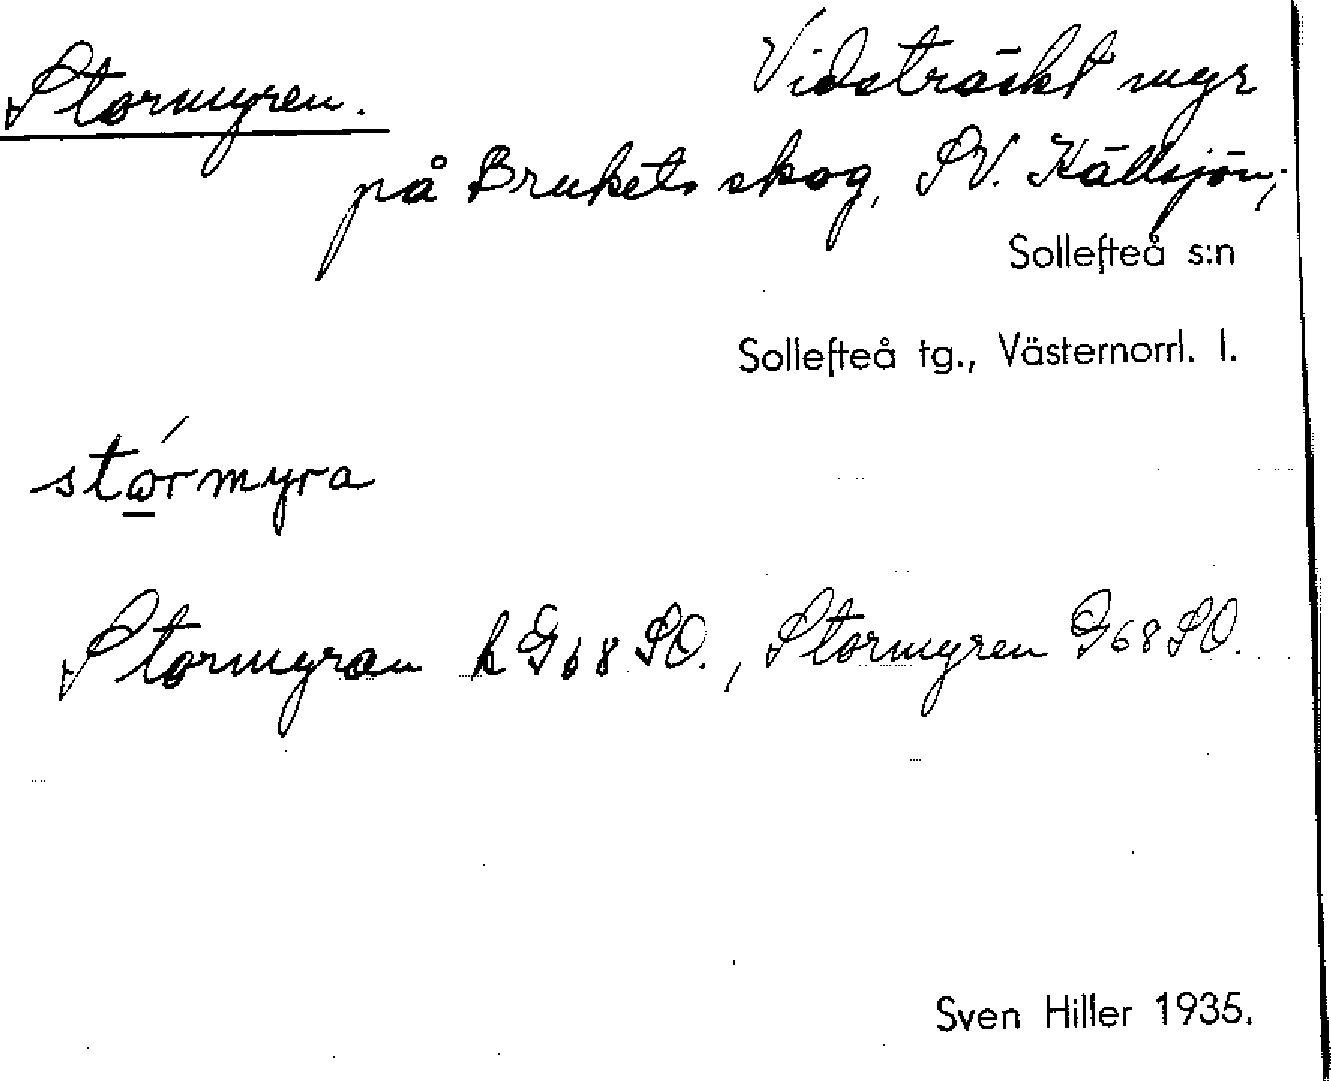 Stormyren. Vidsträckt myr
på Brukets skog, SV. Källsjön;
Sollefteå s:n
Sollefteå tg., Västernorrl. l.
stórmyra
Stormyran h G68 SO., Stormyren G68 SO.
Sven Hiller 1935.